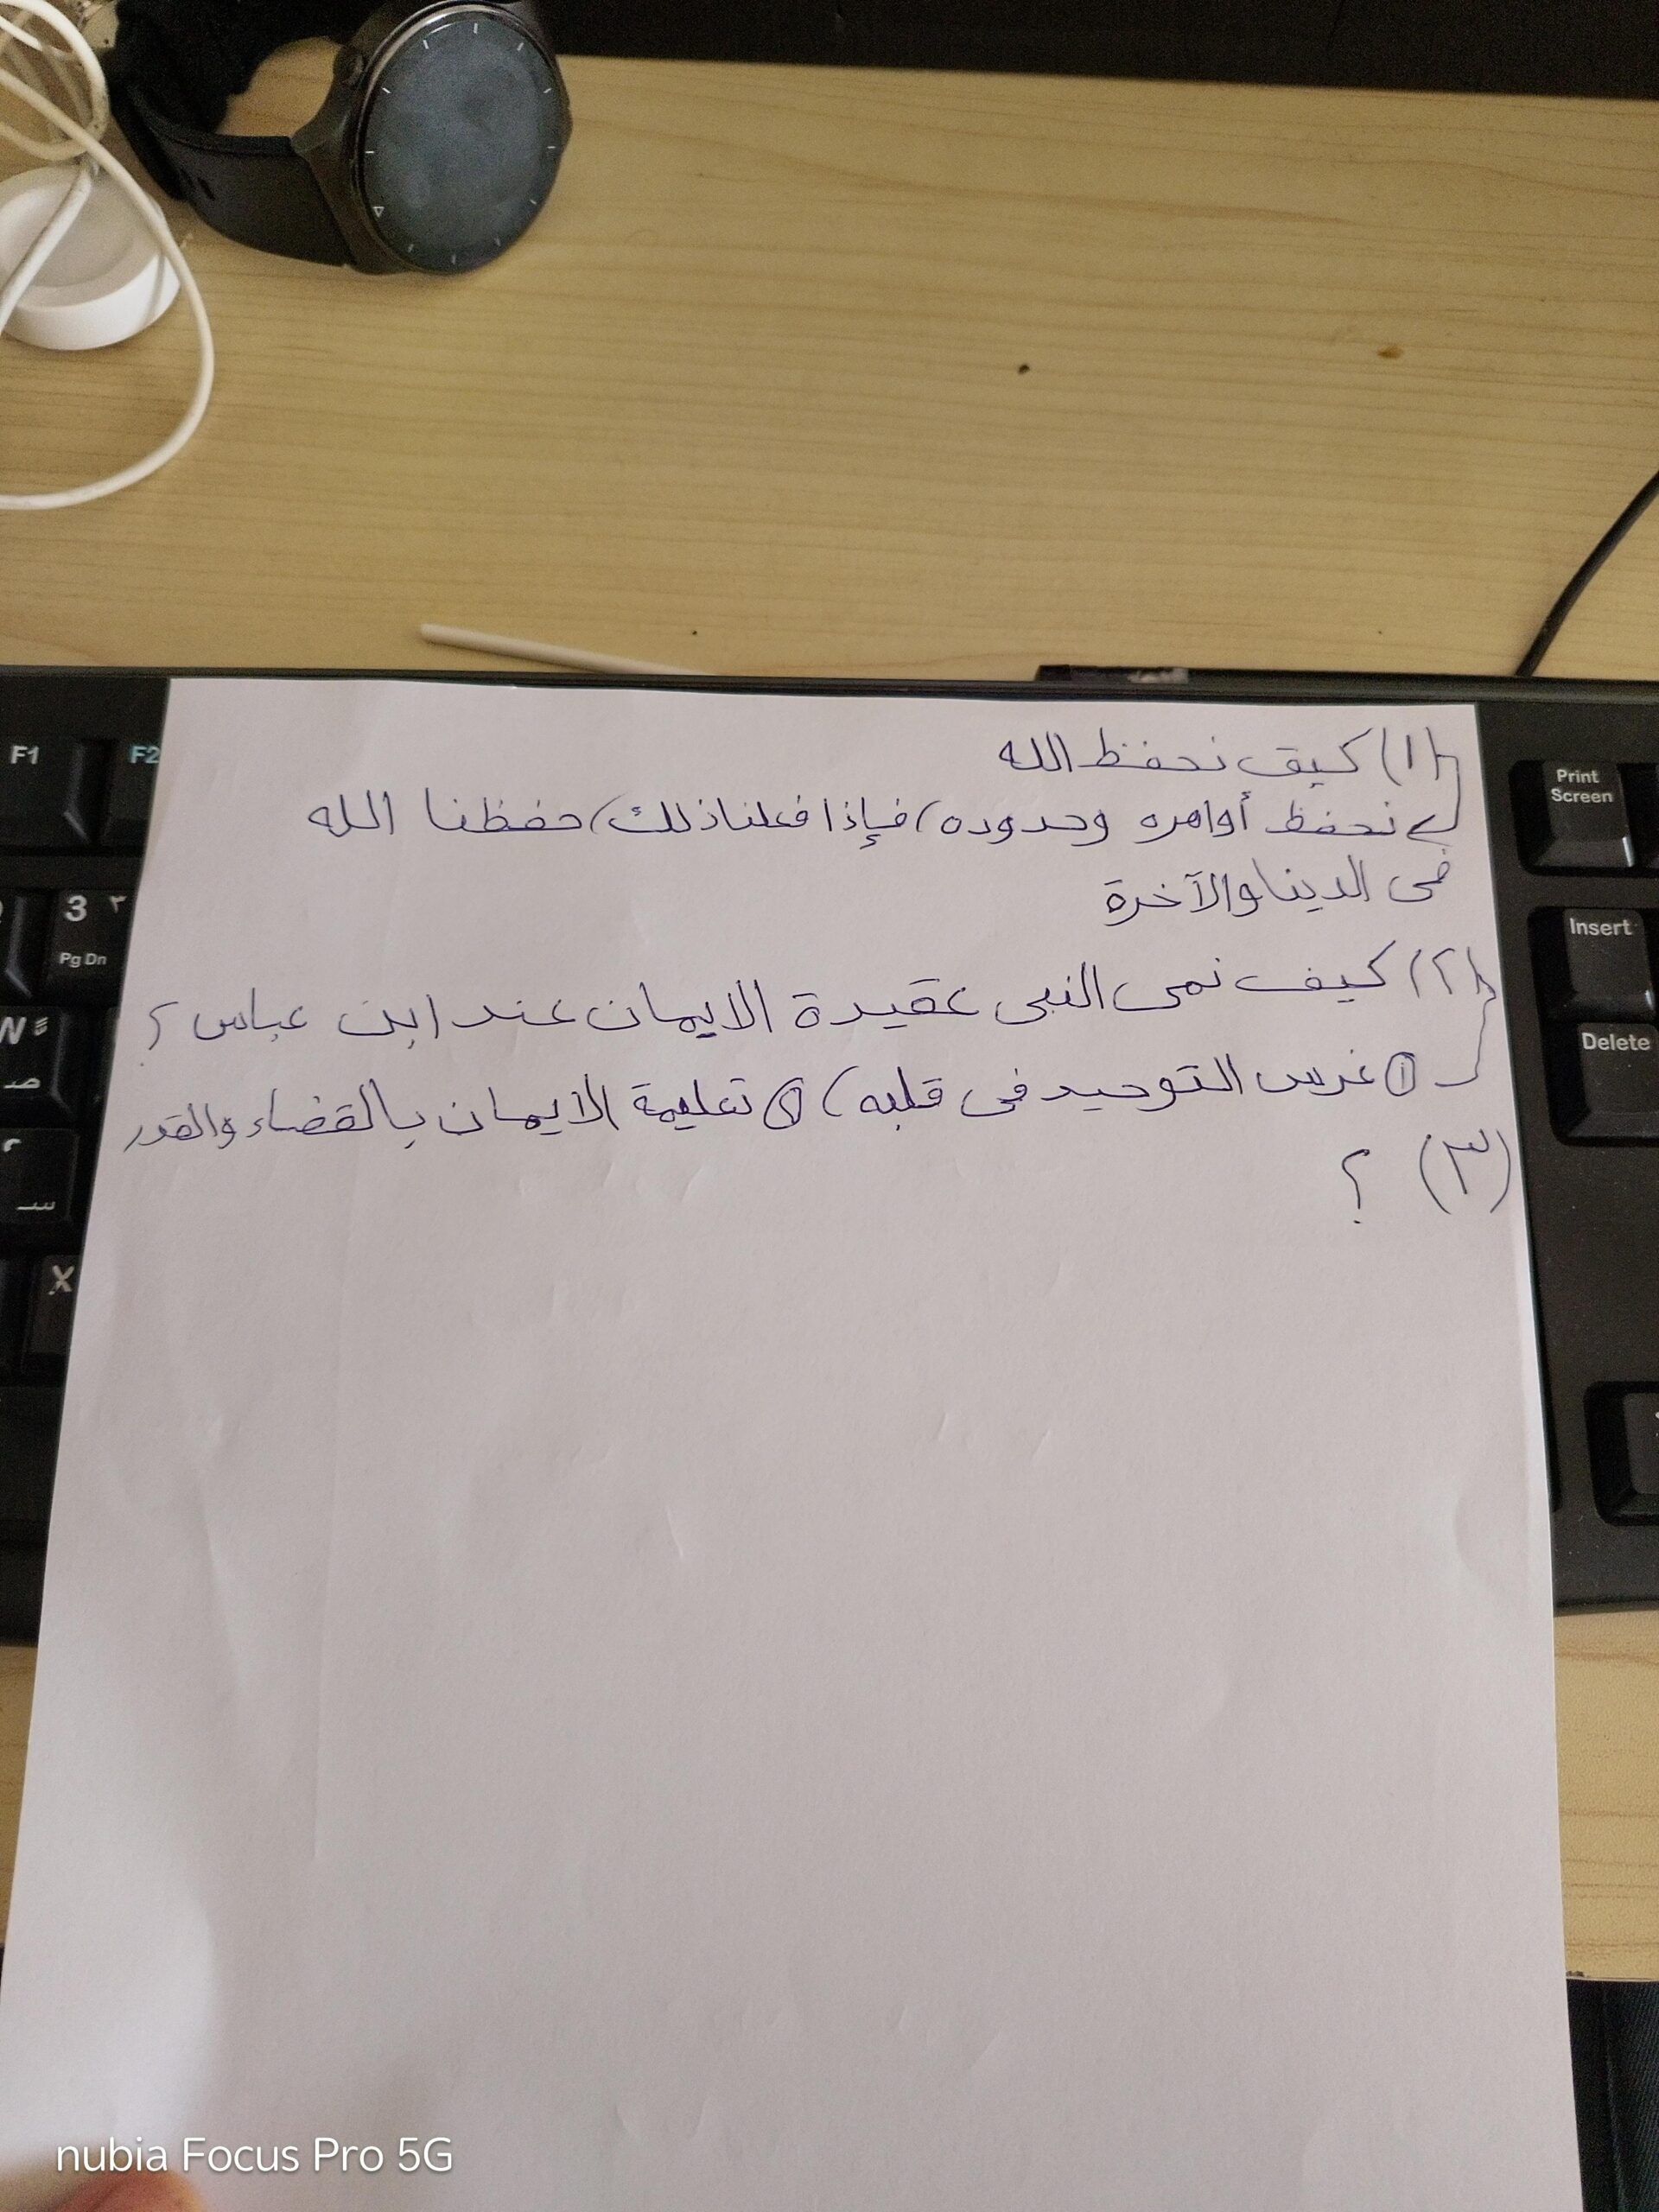 (١) كيف نحفظ الله
نحفظ أوامره وحدوده، فإذا فعلنا ذلك، حفظنا الله
فى الدينا والآخرة
(٢) كيف نمى النبى عقيدة الايمان عند ابن عباس ؟
① غرس التوحيد فى قلبه، ② تعليمة الايمان بالقضاء والقدر
(٣) ؟
F1
F2
3 ٣
Pg Dn
W
ص
س
X
Print
Screen
Insert
Delete
nubia Focus Pro 5G